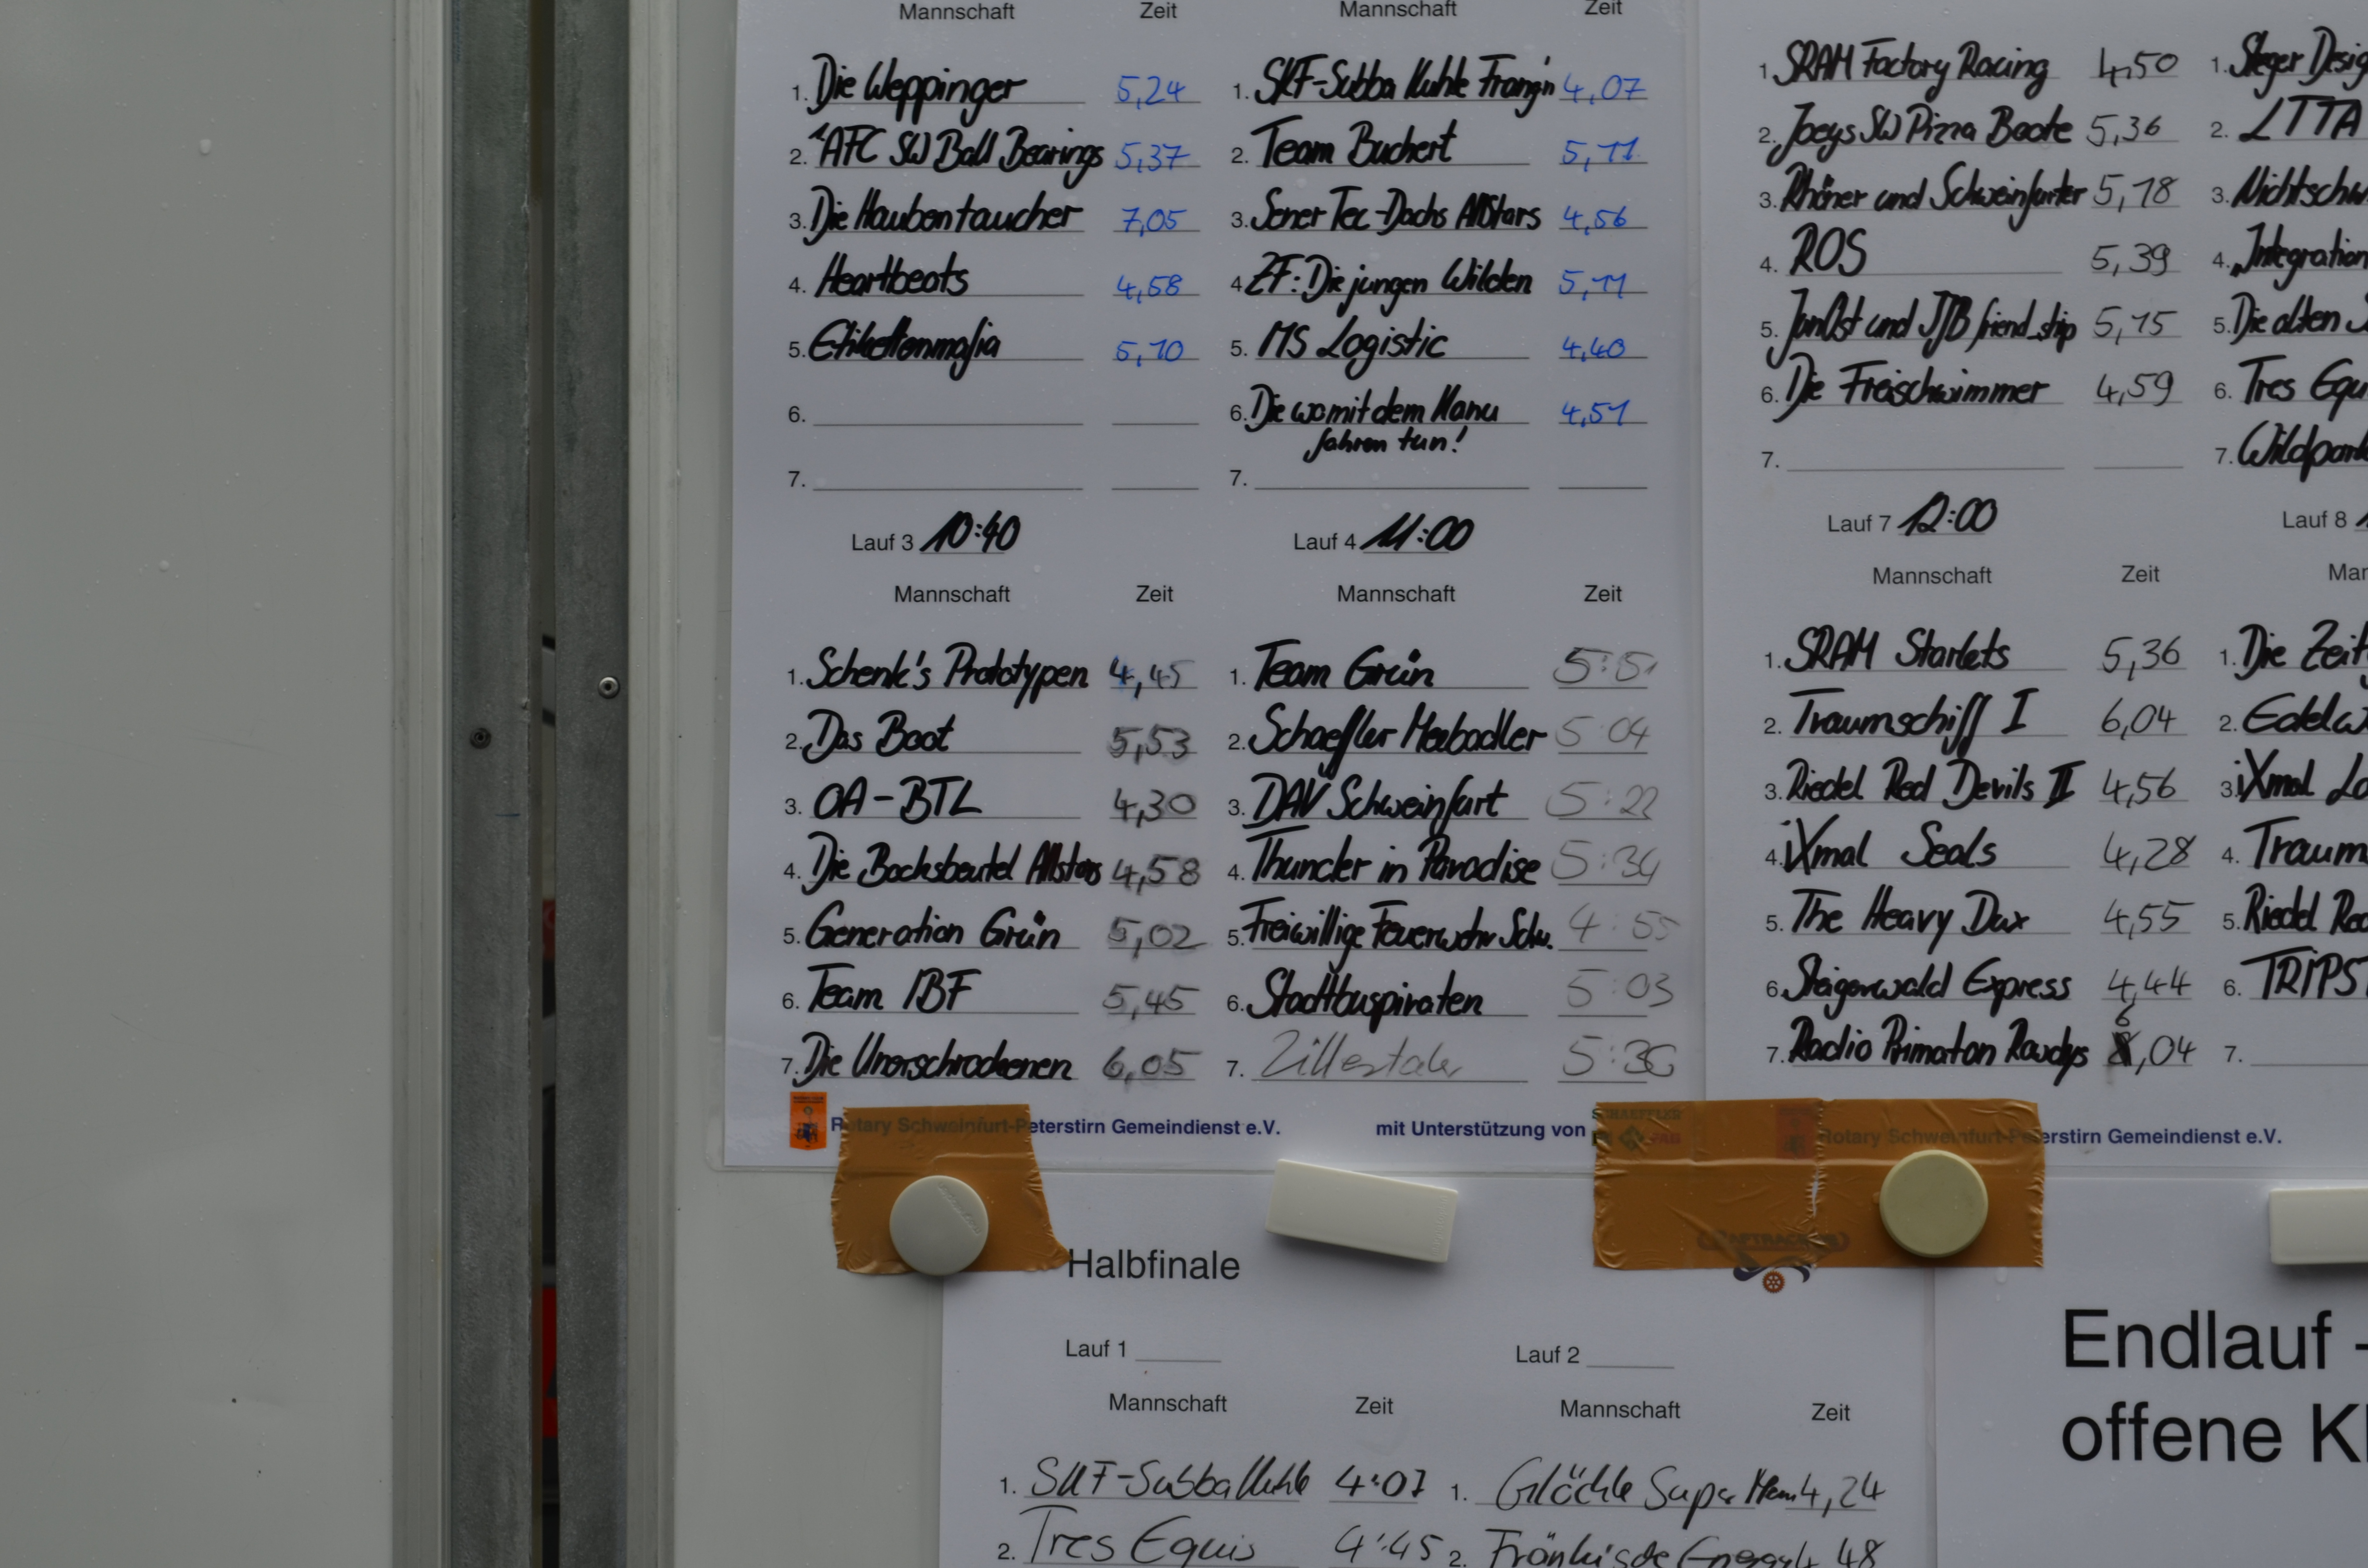 Mannschaft Zeit Mannschaft Zeit
1. Die Weppinger 5,24 1. SKF-Subba Kuhle Frang'n 4,07
2. AFC SW Ball Bearings 5,37 2. Team Buchert 5,11
3. Die Haubentaucher 7,05 3. Sener Tec-Dachs Allstars 4,56
4. Heartbeats 4,58 4. ZF: Die jungen Wilden 5,11
5. Etikettenmafia 5,10 5. MS Logistic 4,40
6. 6. Die wo mit dem Kanu 4,51
fahren tun!
7. 7.
Lauf 3 10:40 Lauf 4 11:00
Mannschaft Zeit Mannschaft Zeit
1. Schenk's Prototypen 4,45 1. Team Grün 5:51
2. Das Boot 5,53 2. Schaeffler 5:04
3. OA-BTL 4,30 3. DAV Schweinfurt 5:22
4. Die Bocksbeutel Allstars 4,58 4. Thunder in Paradise 5:34
5. Generation Grün 5,02 5. Freiwillige Feuerwehr Schw. 4:55
6. Team IBF 5,45 6. Stadtbuspiraten 5:03
7. Die Unerschrockenen 6,05 7. Zillertaler 5:36
Rotary Schweinfurt-Peterstirn Gemeindienst e.V. mit Unterstützung von SCHAEFFLER FAG
1. SRAM Factory Racing 4,50 1. Steger Desig
2. Joeys SW Pizza Boote 5,36 2. LTTA
3. Rhöner und Schweinfurter 5,18 3. Nichtschw
4. ROS 5,39 4. Integration
5. JanOst und JJB friend_ship 5,15 5. Die alten
6. Die Freischwimmer 4,59 6. Tres Equ
7. 7. Wildpark
Lauf 7 12:00 Lauf 8
Mannschaft Zeit Mar
1. SRAM Starlets 5,36 1. Die Zeit
2. Traumschiff I 6,04 2. Edelw
3. Riedel Red Devils II 4,56 3. iXmal Lo
4. iXmal Seals 4,28 4. Traum
5. The Heavy Dax 4,55 5. Riedel Red
6. Steigerwald Express 4,44 6. TRIPS
7. Radio Primaton Rowdys 6,04 7.
Rotary Schweinfurt-Peterstirn Gemeindienst e.V.
Halbfinale
Lauf 1 Lauf 2
Mannschaft Zeit Mannschaft Zeit
1. SKF-Subba Kuhle 4:07 1. Glöckle Super Men 4,24
2. Tres Equis 4:45 2. Fränkische Energy 4,48
Endlauf -
offene Kl